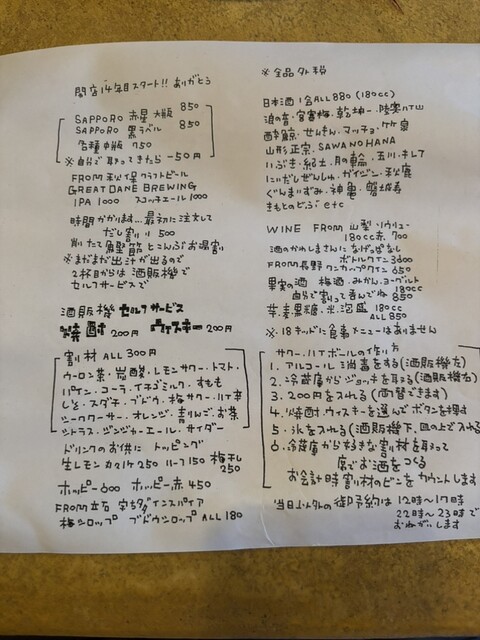 開店14年目スタート!! ありがとう
SAPPORO 赤星 大瓶 850
SAPPORO 黒ラベル 850
各種中瓶 750
※自分で取ってきたら -50円
FROM秋保クラフトビール
GREAT DANE BREWING
IPA 1000 スコッチエール 1000
時間かかります...最初に注文して
だし割り 500
削たて鰹節とこんぶお湯割
※まだまだ出汁が出るので
2杯目からは酒販機で
セルフサービスで
酒販機 セルフサービス
焼酎 200円 ウイスキー 200円
割材 ALL 300円
ウーロン茶・炭酸・レモンサワー・トマト・
パイン・コーラ・イチゴミルク・すもも
しそ・スダチ・ブドウ・梅サワー・ハイ辛
シークワーサー・オレンジ・青りんご・お茶
シトラス・ジンジャーエール・サイダー
ドリンクのお供に トッピング
生レモンカロケ 250 ハーフ 150 梅干し
250
ホッピー 600 ホッピー赤 450
FROM立石 宇ち多゛インスパイア
梅シロップ ブドウシロップ ALL 180
※全品外税
日本酒 1合 ALL 880 (180cc)
浪の音・宮寒梅・乾坤一・陸奥八仙
酔鯨・せんきん・マッチョ・竹泉
山形正宗・SAWANOHANA
いぶき・紀土・月の輪・玉川・キレイ
にいだしぜんしゅ・ガイジン・秋鹿
ぐんまいずみ・神亀・磐城壽
きもとのどぶ etc
WINE FROM 山梨・ソウリュー
180cc 赤 700
酒のかわしまさんに なげっぱなし
ボトルワイン 3600
FROM長野 ワンカップワイン 650
果実の酒 梅酒・みかん・ヨーグルト
180cc
自分で割って呑んでね 850
芋・麦・黒糖・米・泡盛 180cc
ALL 850
※18キッドに食事メニューはありません
サワー・ハイボールの作り方
1. アルコール消毒をする(酒販機左)
2. 冷蔵庫からジョッキを取る(酒販機右)
3. 200円を入れる(両替できます)
4. 焼酎・ウイスキーを選んでボタンを押す
5. 氷を入れる(酒販機下、皿の上で入れる
6. 冷蔵庫から好きな割り材を取って
席でお酒をつくる
お会計時割り材のビンをカウントします
当日以外の御予約は 12時〜17時
22時〜23時で
おねがいします